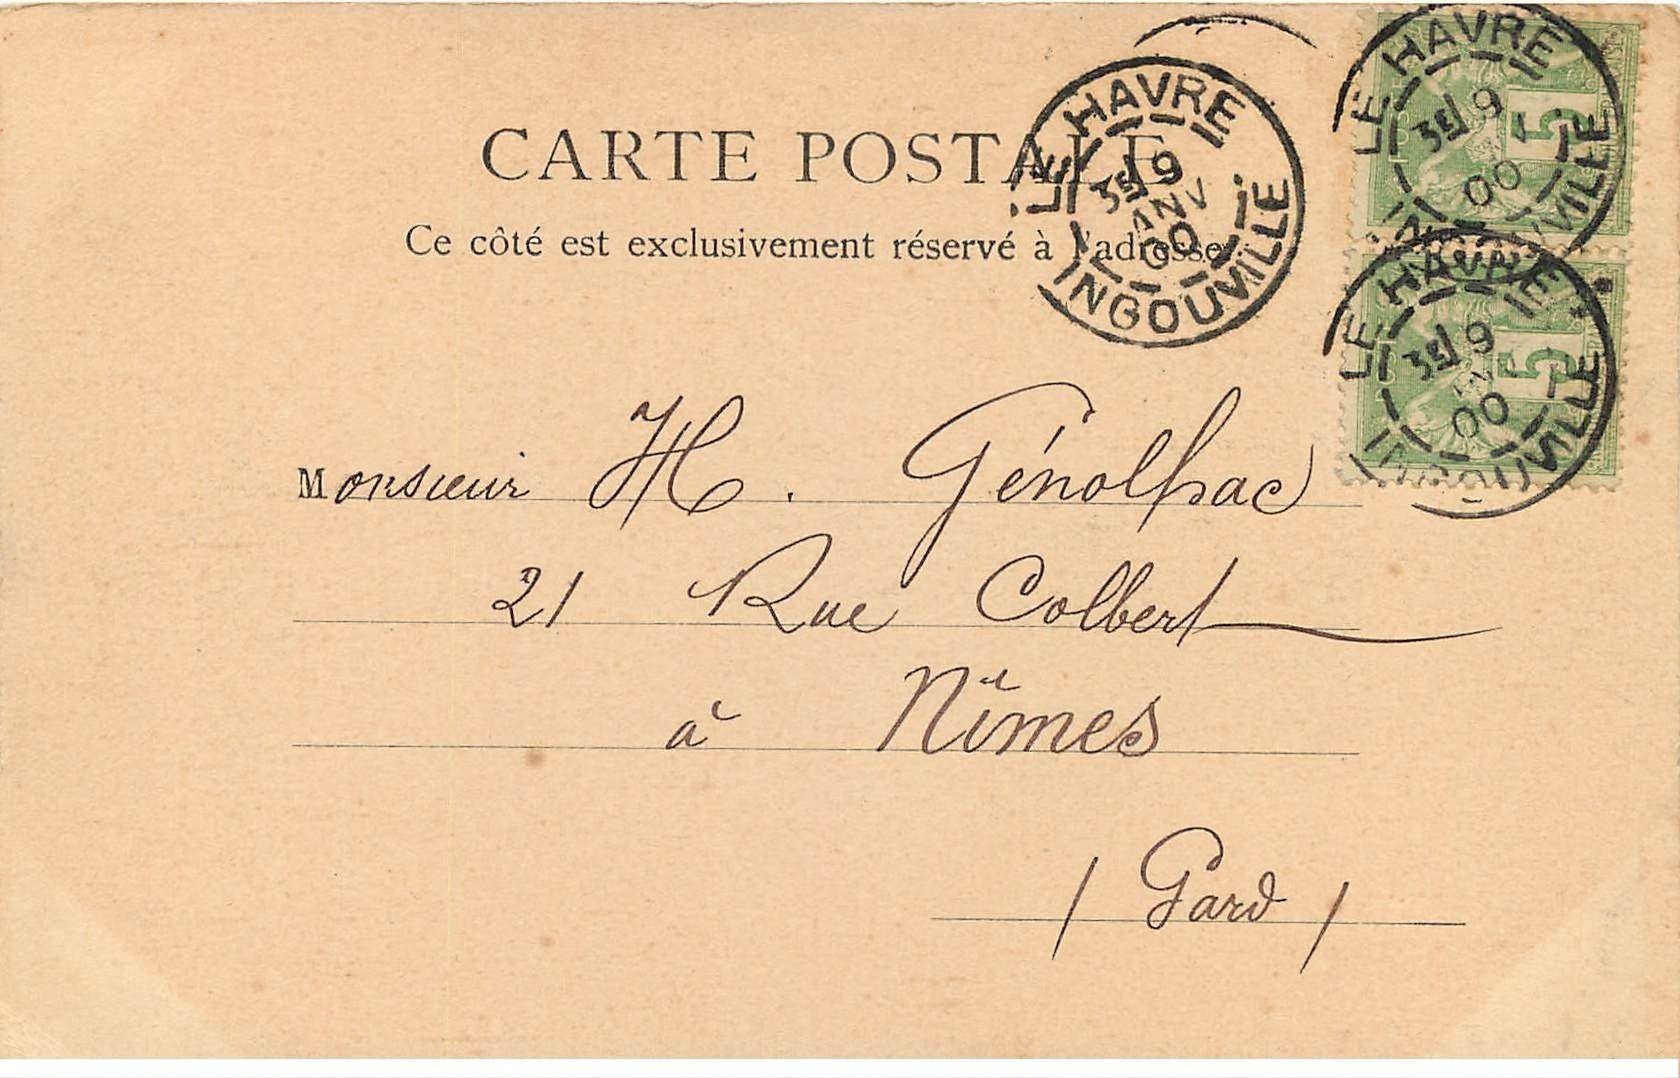 CARTE POSTALE
Ce côté est exclusivement réservé à l'adresse
LE HAVRE
3E 9
JANV
00
INGOUVILLE
LE HAVRE
3E 9
00
INGOUVILLE
5
LE HAVRE
3E 9
00
INGOUVILLE
5
Monsieur H. Génolhac
21 Rue Colbert
à Nîmes
(Gard)